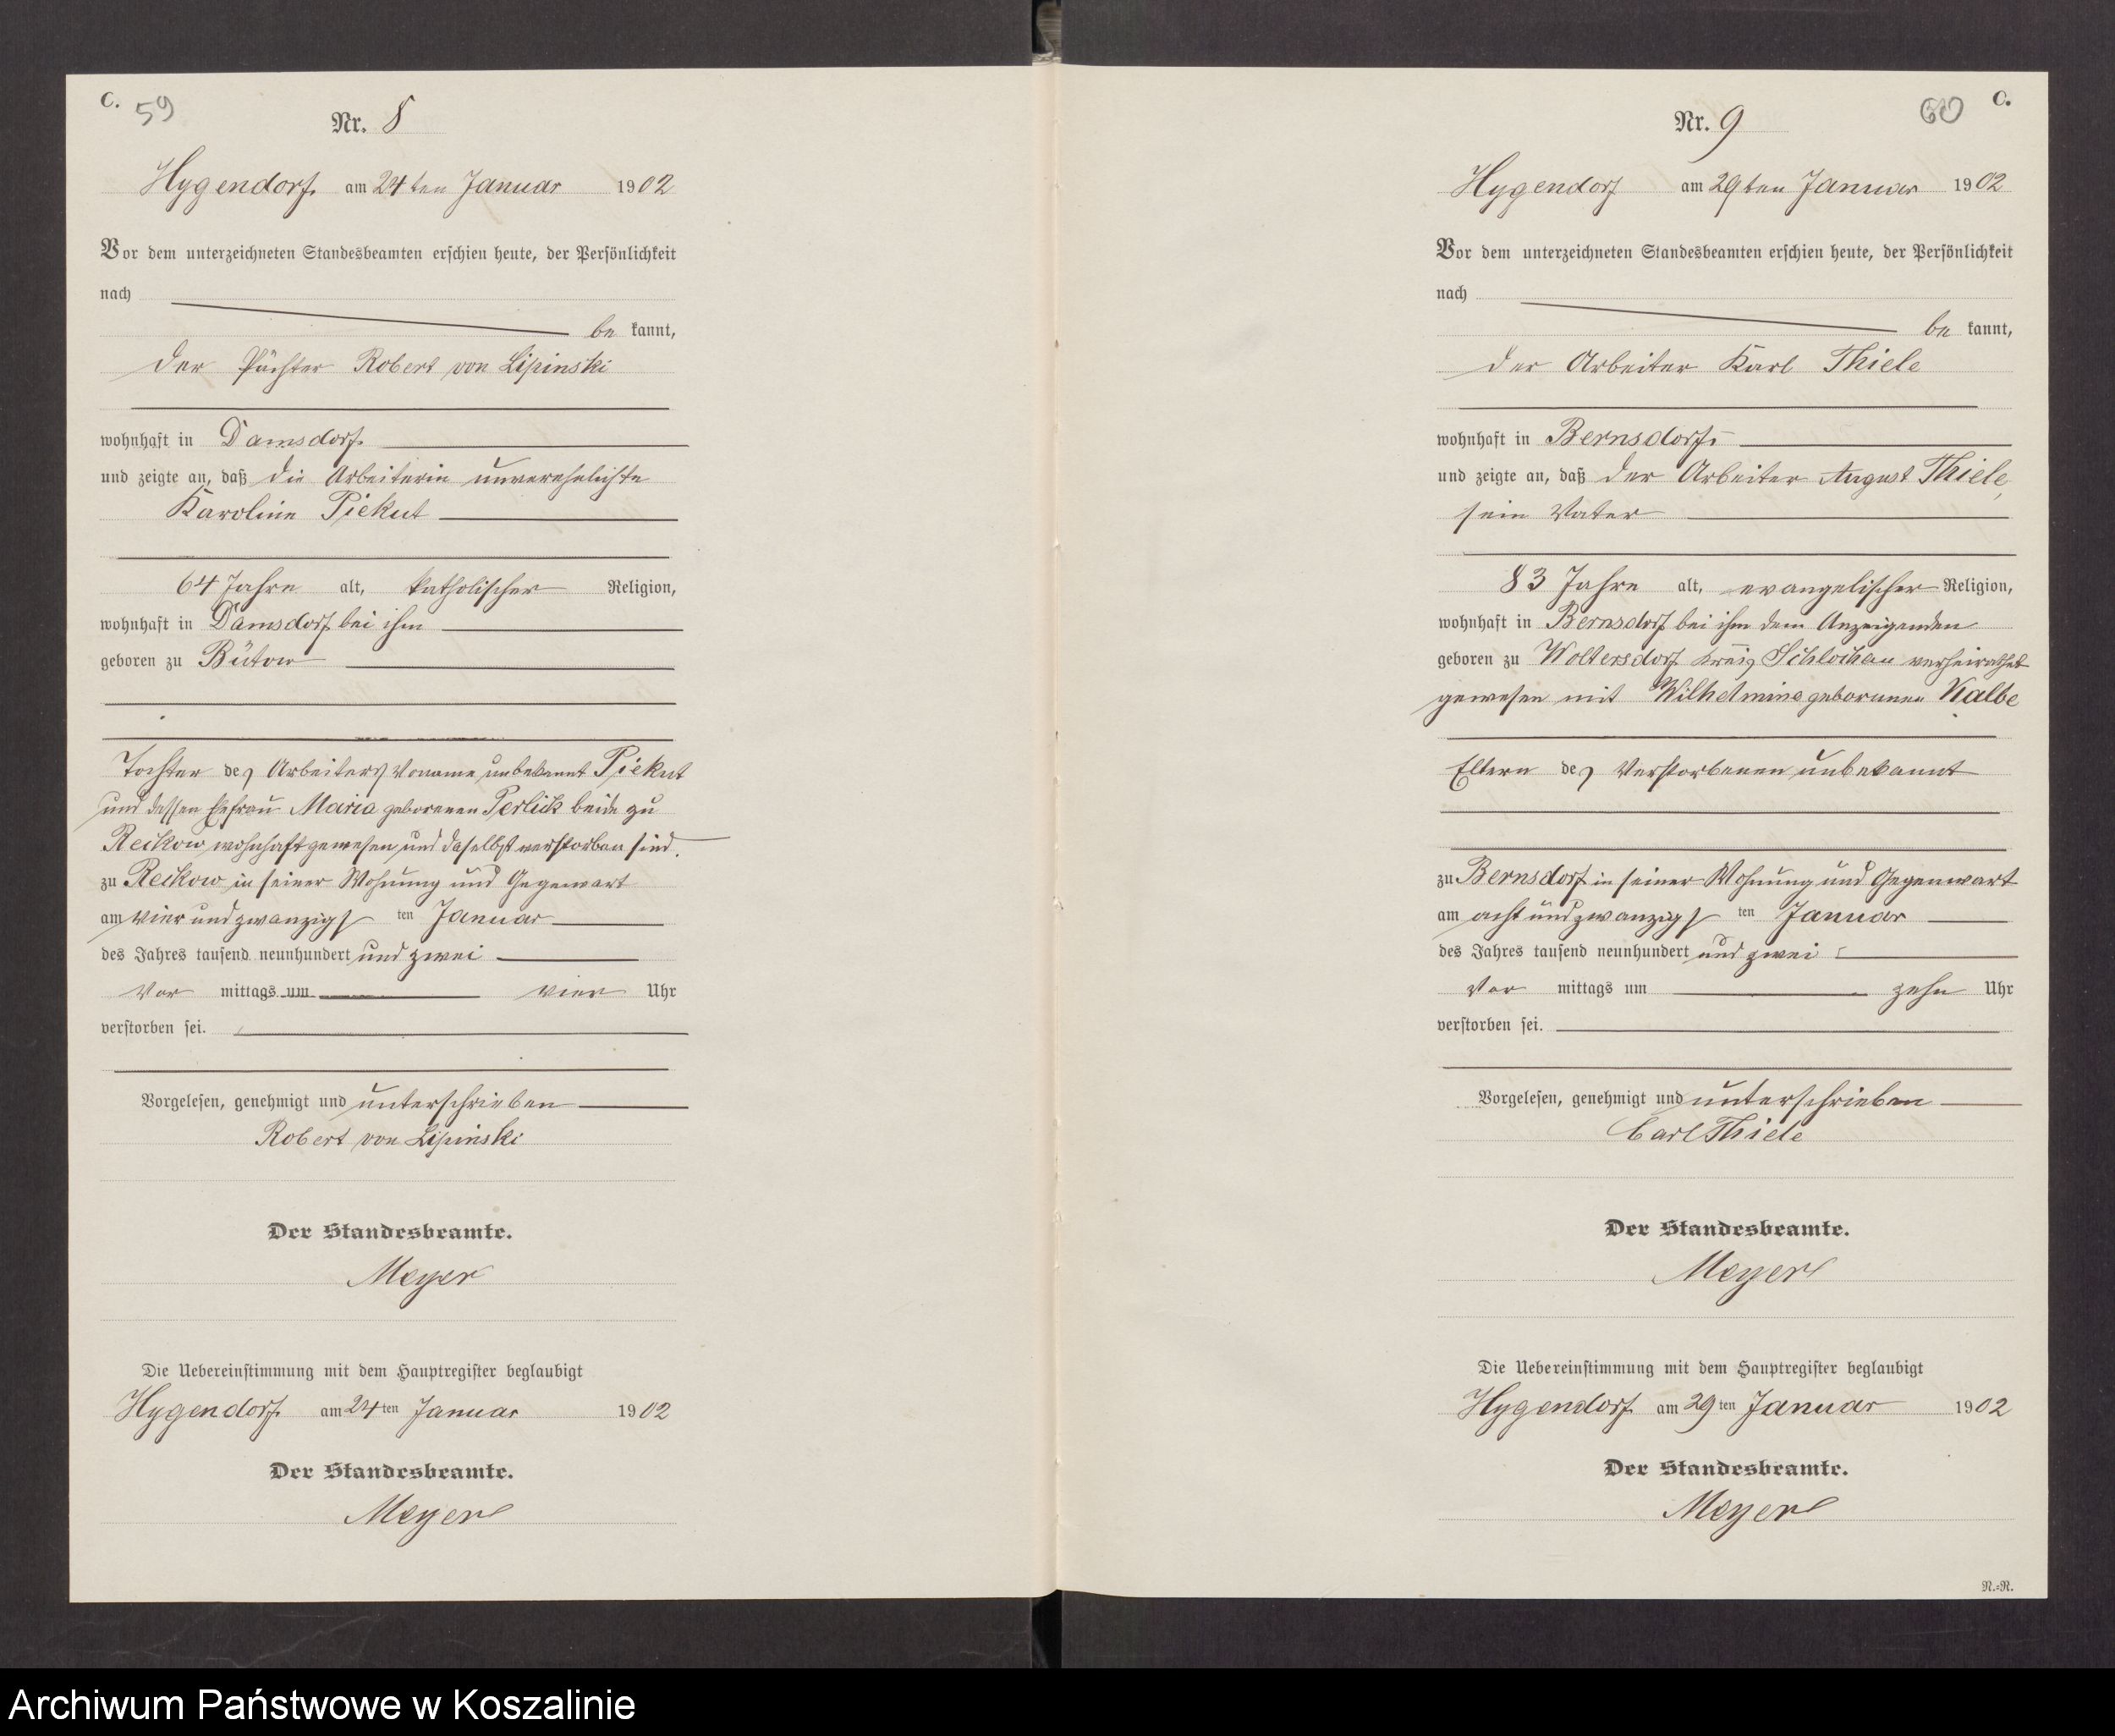 C. 59
Nr. 8
Hygendorf am 24ten Januar 1902
Vor dem unterzeichneten Standesbeamten erschien heute, der Persönlichkeit
nach
be kannt,
der Pächter Robert von Lipinski
wohnhaft in Damsdorf
und zeigte an, daß die Arbeiterin unverehelichte
Karoline Piekut
64 Jahre alt, katholischer Religion,
wohnhaft in Damsdorf bei ihm
geboren zu Bütow
Tochter des Arbeiters Voname unbekannt Piekut
und dessen Ehefrau Maria geborenen Perlick beide zu
Reckow wohnhaft gewesen und daselbst verstorben sind.
zu Reckow in seiner Wohnung und Gegenwart
am vier und zwanzigs ten Januar
des Jahres tausend neunhundert und zwei
Vor mittags um vier Uhr
verstorben sei.
Vorgelesen, genehmigt und unterschrieben
Robert von Lipinski
Der Standesbeamte.
Meyer
Die Uebereinstimmung mit dem Hauptregister beglaubigt
Hygendorf am 24ten Januar 1902
Der Standesbeamte.
Meyer
60 C.
Nr. 9
Hygendorf am 29ten Januar 1902
Vor dem unterzeichneten Standesbeamten erschien heute, der Persönlichkeit
nach
be kannt,
der Arbeiter Karl Thiele
wohnhaft in Bernsdorf
und zeigte an, daß der Arbeiter August Thiele,
sein Vater
83 Jahre alt, evangelischer Religion,
wohnhaft in Bernsdorf bei ihm dem Anzeigenden
geboren zu Woltersdorf Kreis Schlochau verheirathet
gewesen mit Wilhelmine geborenen Kalbe
Eltern des Verstorbenen unbekannt
zu Bernsdorf in seiner Wohnung und Gegenwart
am acht und zwanzigs ten Januar
des Jahres tausend neunhundert und zwei
Vor mittags um zehn Uhr
verstorben sei.
Vorgelesen, genehmigt und unterschrieben
Carl Thiele
Der Standesbeamte.
Meyer
Die Uebereinstimmung mit dem Hauptregister beglaubigt
Hygendorf am 29ten Januar 1902
Der Standesbeamte.
Meyer
N.=R.
Archiwum Państwowe w Koszalinie